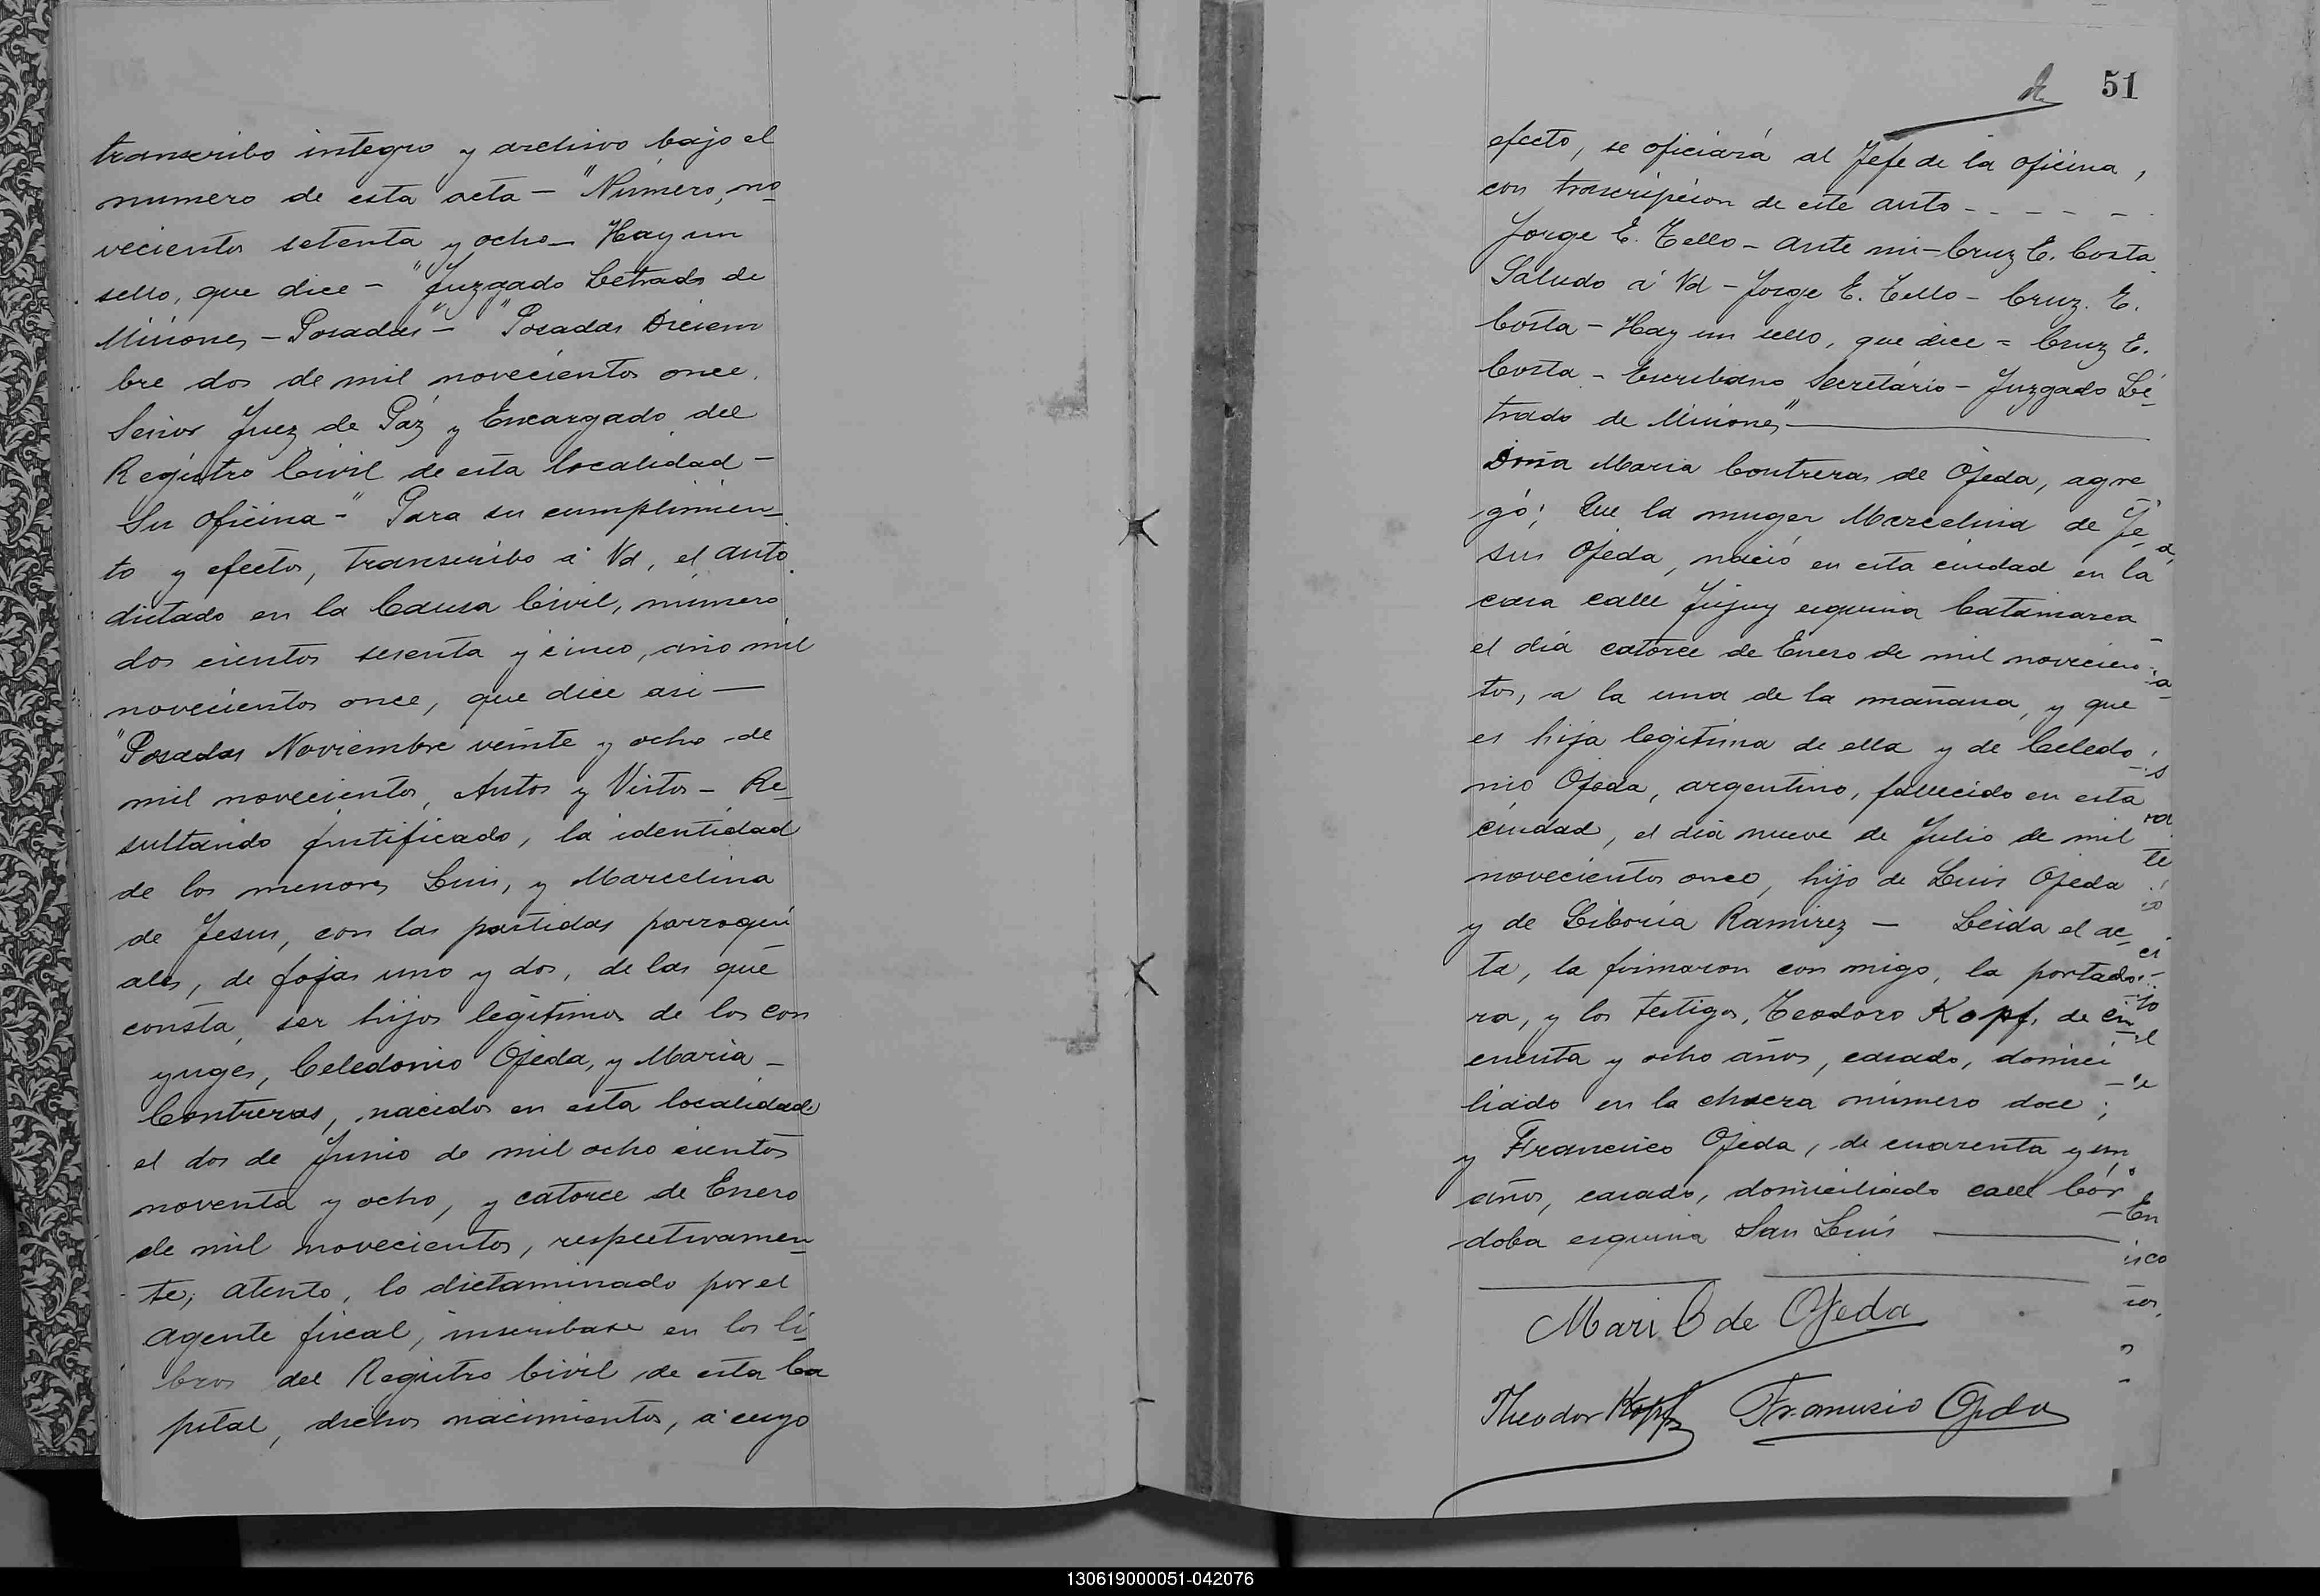 transcribo integro y archivo bajo el
numero de esta acta - "Número, no
vecientos setenta y ocho - Hay un
sello, que dice - "Juzgado Letrado de
Misiones - Posadas" - "Posadas Diciem
bre dos de mil novecientos once.
Señor Juez de Páz y Encargado del
Registro Civil de esta localidad -
Su Oficina - " Para su cumplimien-
to y efectos, transcribo á Vd, el auto
dictado en la Causa Civil, número
dos cientos sesenta y cinco, año mil
novecientos once, que dice asi -
"Posadas Noviembre veinte y ocho de
mil novecientos, Autos y Vistos - Re-
sultando justificado, la identidad
de los menores Luis, y Marcelina
de Jesus, con las partidas parroqui
ales, de fojas uno y dos, de las que
consta, ser hijos legitimos de los con
yuges, Celedonio Ojeda, y Maria -
Contreras, nacidos en esta localidad
el dos de Junio de mil ocho cientos
noventa y ocho, y catorce de Enero
de mil novecientos, respectivamen-
te; atento, lo dictaminado por el
agente fiscal, inscribase en los li-
bros del Registro Civil de esta Ca
pital, dichos nacimientos, á cuyo
51
efecto, se oficiará al Jefe de la oficina,
con trascripcion de este auto - - - - -
Jorge E. Tello - ante mi - Cruz E. Costa
Saludo á Vd - Jorge E. Tello - Cruz. E.
Costa - Hay un sello, que dice = Cruz E.
Costa - Escribano Secretário - Juzgado Le-
trado de Misiones" -
Doña Maria Contreras de Ojeda, agre
gó; Que la muger Marcelina de Je-
sus Ojeda, nació en esta ciudad en la
casa calle Jujuy esquina Catamarca
el dia catorce de Enero de mil novecien-
tos, a la una de la mañana, y que
es hija legitima de ella y de Celedo-
nio Ojeda, argentino, fallecido en esta
ciudad, el dia nueve de Julio de mil
novecientos once, hijo de Luis Ojeda
y de Liboria Ramirez - Leida el ac-
ta, la firmaron con migo, la portado-
ra, y los testigos, Teodoro Kopf, de cin-
cuenta y ocho años, casado, domici-
liado en la chacra número doce;
y Francisco Ojeda, de cuarenta y un
años, casado, domiciliado calle Cór-
doba esquina San Luis
Mari C de Ojeda
Theodor Kopf Francisco Ojeda
130619000051-042076